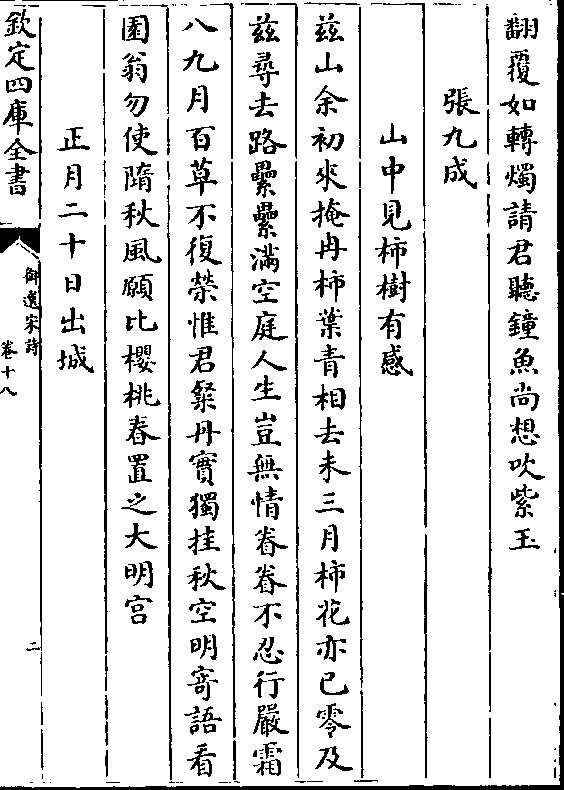 翻覆如轉燭請君聽鐘魚尚想吹紫玉
張九成
山中見柿樹有感
兹山余初來掩冉柿葉青相去未三月柿花亦已零及
兹尋去路纍纍滿空庭人生豈無情眷眷不忍行嚴霜
八九月百草不復榮惟君粲丹實獨挂秋空明寄語看
園翁勿使隨秋風願比櫻桃春置之大明宫
正月二十日出城
欽定四庫全書
御選宋詩
卷十八
二